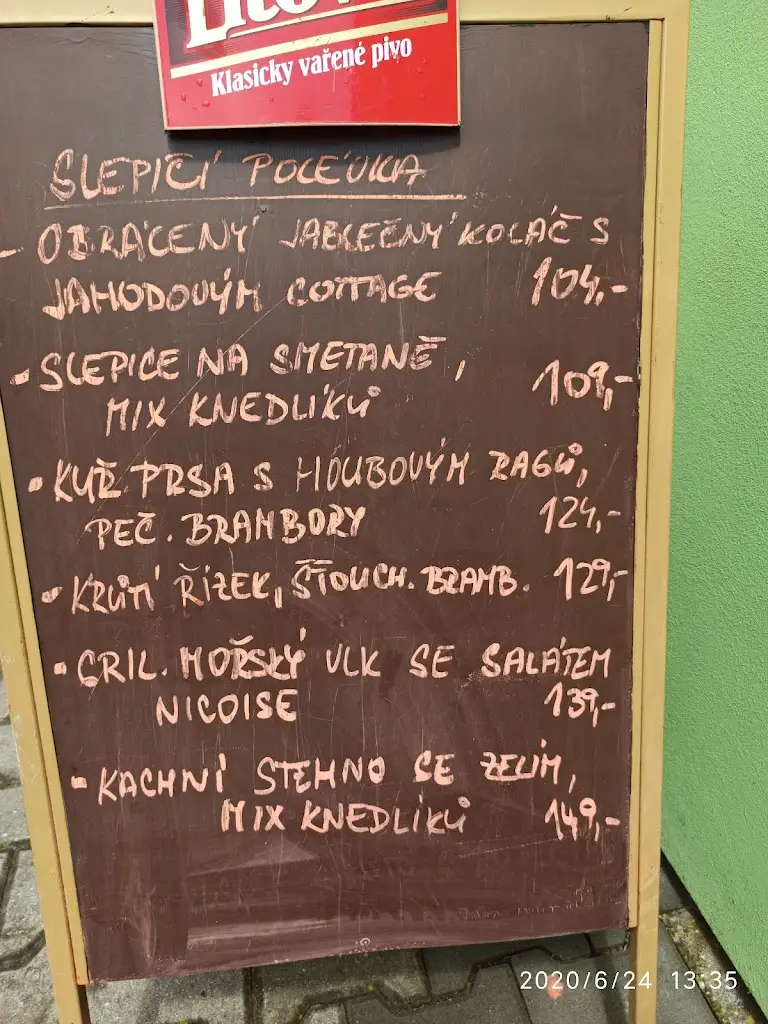 Klasicky vařené pivo
SLEPIČÍ POLÉVKA
- OBRÁCENÝ JABLEČNÝ KOLÁČ S
JAHODOVÝM COTTAGE 104,-
- SLEPICE NA SMETANĚ,
MIX KNEDLÍKŮ 109,-
• KUŘ. PRSA S HOUBOVÝM RAGÚ,
PEČ. BRAMBORY 124,-
• KRŮTÍ ŘÍZEK, ŠŤOUCH. BRAMB. 129,-
• GRIL. MOŘSKÝ VLK SE SALÁTEM
NICOISE 139,-
• KACHNÍ STEHNO SE ZELÍM,
MIX KNEDLÍKŮ 149,-
2020/6/24 13:35